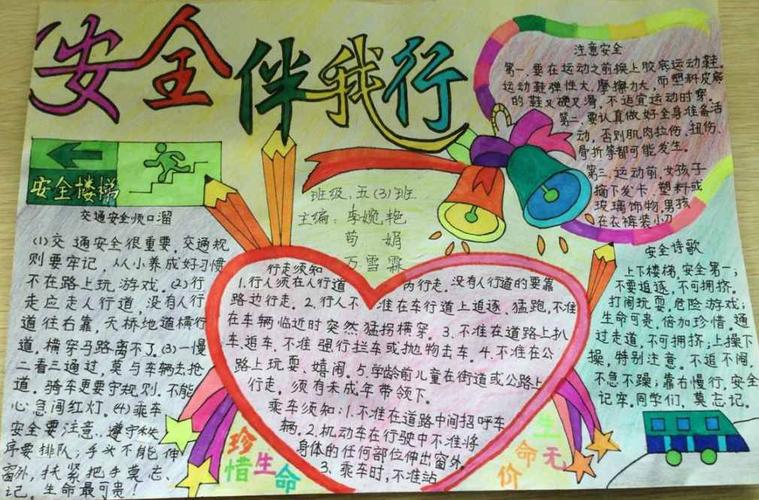 安全伴我行
安全楼梯
交通安全顺口溜
(1)交通安全很重要,交通规
则要牢记,从小养成好习惯
不在路上玩游戏。(2)行
走应走人行道,没有人行
道往右靠,天桥地道横行
道,横穿马路离不了。(3)一慢
二看三通过,莫与车辆去抢
道,骑车更要守规则,不能
心急闯红灯。(4)乘车
安全要注意,遵守秩
序要排队;手头不能伸
窗外,扶紧把手莫忘
记。生命最可贵!
班级:五(3)班
主编:李婉艳
苟娟
万雪霖
行走须知
1.行人须在人行道内行走,没有人行道的要靠
路边行走。2.行人不准在车行道上追逐、猛跑,不准
在车辆临近时突然猛拐横穿。3.不准在道路上扒
车、追车,不准强行拦车或抛物击车。4.不准在公
路上玩耍、嬉闹。5.学龄前儿童在街道或公路上
行走,须有未成年带领下。
乘车须知:1.不准在道路中间招呼车
辆。2.机动车在行驶中不准将
身体的任何部位伸出窗外。
3、乘车时,不准站
注意安全
第一.要在运动之前换上胶底运动鞋。
运动鞋弹性大,摩擦力大,而塑料皮底
的鞋又硬又滑,不适宜运动时穿。
第二.要认真做好全身准备活
动,否则肌肉拉伤、扭伤、
骨折等都可能发生。
第三.运动前,女孩子
摘下发卡.塑料或
玻璃饰物,男孩
在衣裤装小刀
安全诗歌
上下楼梯,安全第一;
不要追逐,不可拥挤。
打闹玩耍,危险游戏;
生命可贵,倍加珍惜。通
过走道,不可拥挤;上操下
操,特别注意。不追不闹,
不急不躁;靠右慢行,安全
记牢。同学们,莫忘记。
珍惜生命
生命无价